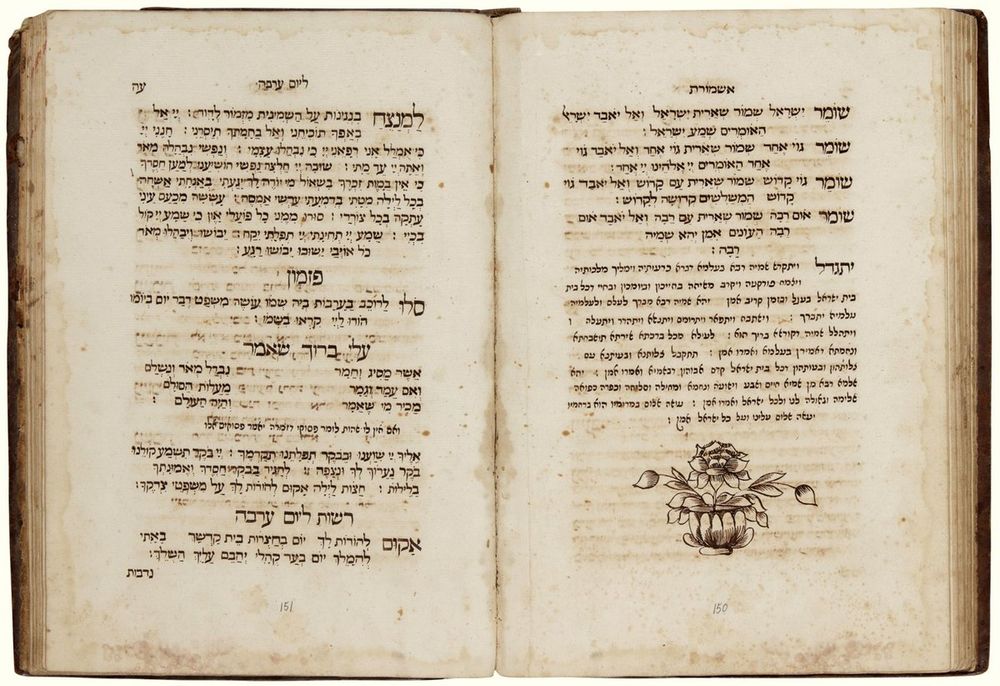 אשמורת
שומר ישראל שמור שארית ישראל ואל יאבד ישראל
האומרים שמע ישראל :
שומר גוי אחד שמור שארית גוי אחד ואל יאבד גוי
אחד האומרים יי אלהינו יי אחד :
שומר גוי קדוש שמור שארית עם קדוש ואל יאבד גוי
קדוש המשלשים קדושה לקדוש :
שומר אום רבה שמור שארית עם רבה ואל יאבד אום
רבה העונים אמן יהא שמיה
רבה :
יתגדל ויתקדש שמיה רבא בעלמא דברא כרעותיה וימליך מלכותיה
ויצמח פורקניה ויקרב משיחיה בחייכון וביומכון ובחיי דכל בית
בית ישראל בעגל ובזמן קריב אמן : יהא שמיה רבא מברך לעלם ולעלמי
עלמיא יתברך : וישתבח ויתפאר ויתרומם ויתנשא ויתהדר ויתעלה
ויתהלל שמיה דקודשא בריך הוא : לעילא מכל ברכתא שירתא תושבחתא
ונחמתא דאמירן בעלמא ואמרו אמן : תתקבל צלותנא ובעותנא עם
צלותהון ובעותהון דכל בית ישראל קדם אבוהון דבשמיא ואמרו אמן : יהא
שלמא רבא מן שמיא חיים ושבע וישועה ונחמא ומחילה וסליחה וכפרה
שלימה וגאולה לנו ולכל ישראל ואמרו אמן : עושה שלום במרומיו הוא ברחמיו
יעשה שלום עלינו ועל כל ישראל אמן :
150
ליום ערבה עה
למנצח בנגינות על השמינית מזמור לדוד : יי אל
באפך תוכיחני ואל בחמתך תיסרני : חנני יי
כי אמלל אני רפאני יי כי נבהלו עצמי : ונפשי נבהלה מאד
ואתה יי עד מתי : שובה יי חלצה נפשי הושיעני למען חסדך :
כי אין במות זכרך בשאול מי יודה לך יגעתי באנחתי אשחה
בכל לילה מטתי בדמעתי ערשי אמסה : עששה מכעס עיני
עתקה בכל צוררי : סורו ממני כל פועלי און כי שמע יי קול
בכיי : שמע יי תחינתי יי תפלתי יקח : יבושו ויבהלו מאד
כל אויבי ישובו יבושו רגע :
פזמון
סלו לרוכב בערבות ביה שמו עושה משפט דבר יום ביומו
הודו ליי קראו בשמו :
על ברוך שאמר
אשר מסיג וחמר נבדל מאד ונעלם
ואם עמד וגמר מעלות הסולם
מכיר מי שאמר והיה העולם :
ואם אין לו שהות לומר פסוקי דזמרה יאמר פסוקים אלו
אליך יי שועתי ובבקר תפלתנו תקדמך : יי בקר תשמע קולנו
בקר נערוך לך ונצפה : להגיד בבקר חסדך ואמונתך
בלילות : חצות לילה אקום להודות לך על משפטי צדקך :
רשות ליום ערבה
אקום להודות לך יום בחצרות בית קדשך באתי
להמלך יום בער קהלי יהבם עליך השלך :
נדבות
151